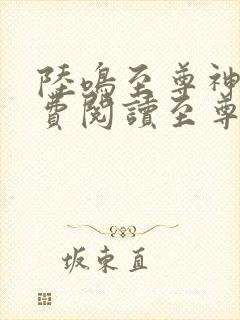 陸鳴至尊神
費閱讀至尊
坂東直